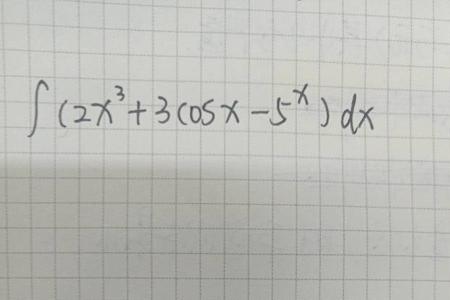 ∫(2x³+3cosx-5ˣ)dx